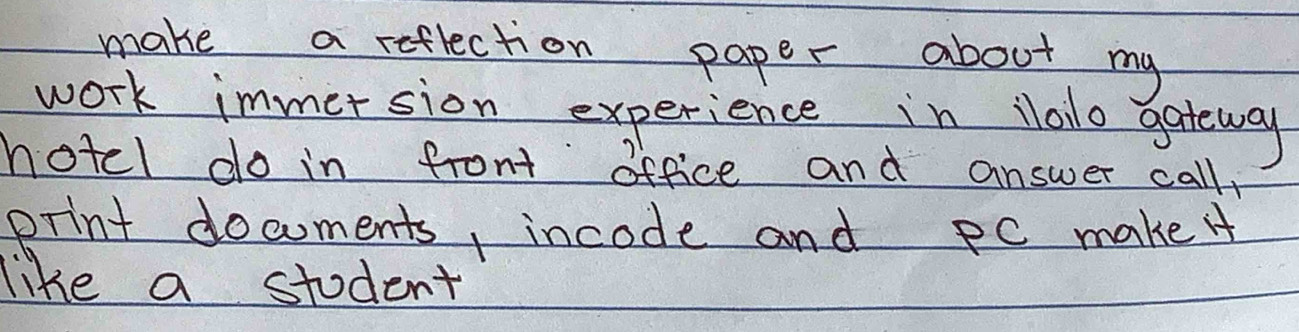 make a reflection paper about my
work immersion experience in iloilo gateway
hotel do in front office and answer call,
print documents, incode and PC make it
like a student